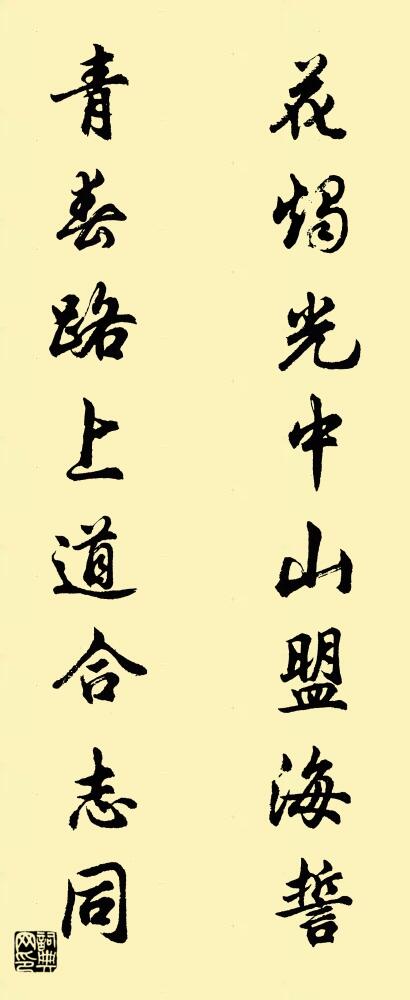 花烛光中山盟海誓
青春路上道合志同
詞典网印